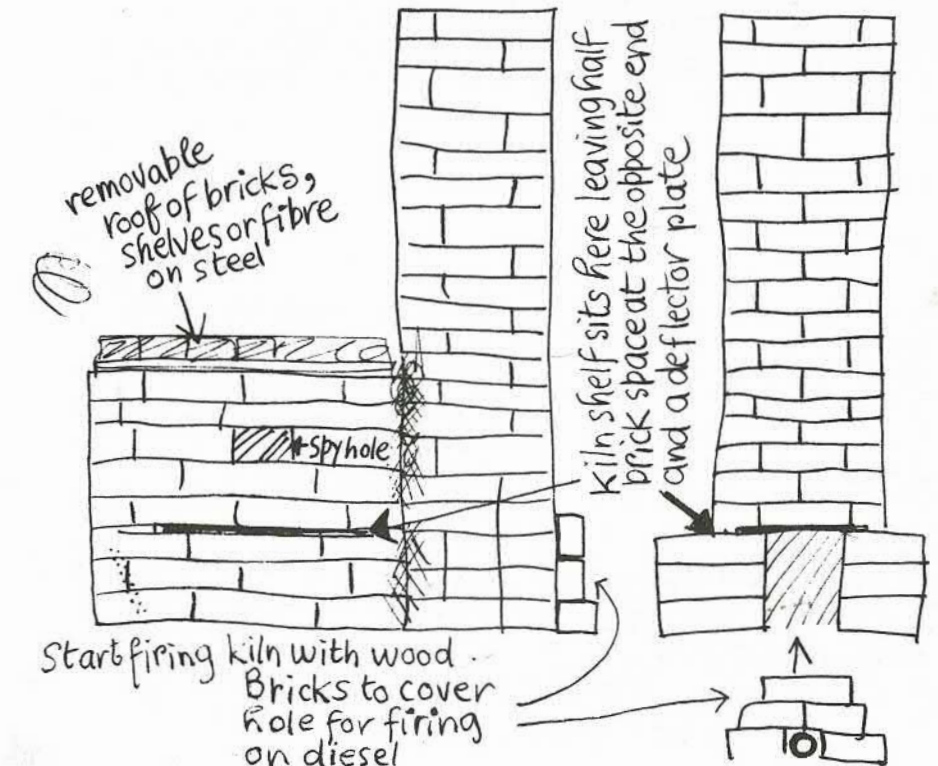 removable
roof of bricks,
shelves or fibre
on steel
spyhole
kiln shelf sits here leaving half
brick space at the opposite end
and a deflector plate
Start firing kiln with wood
Bricks to cover
hole for firing
on diesel